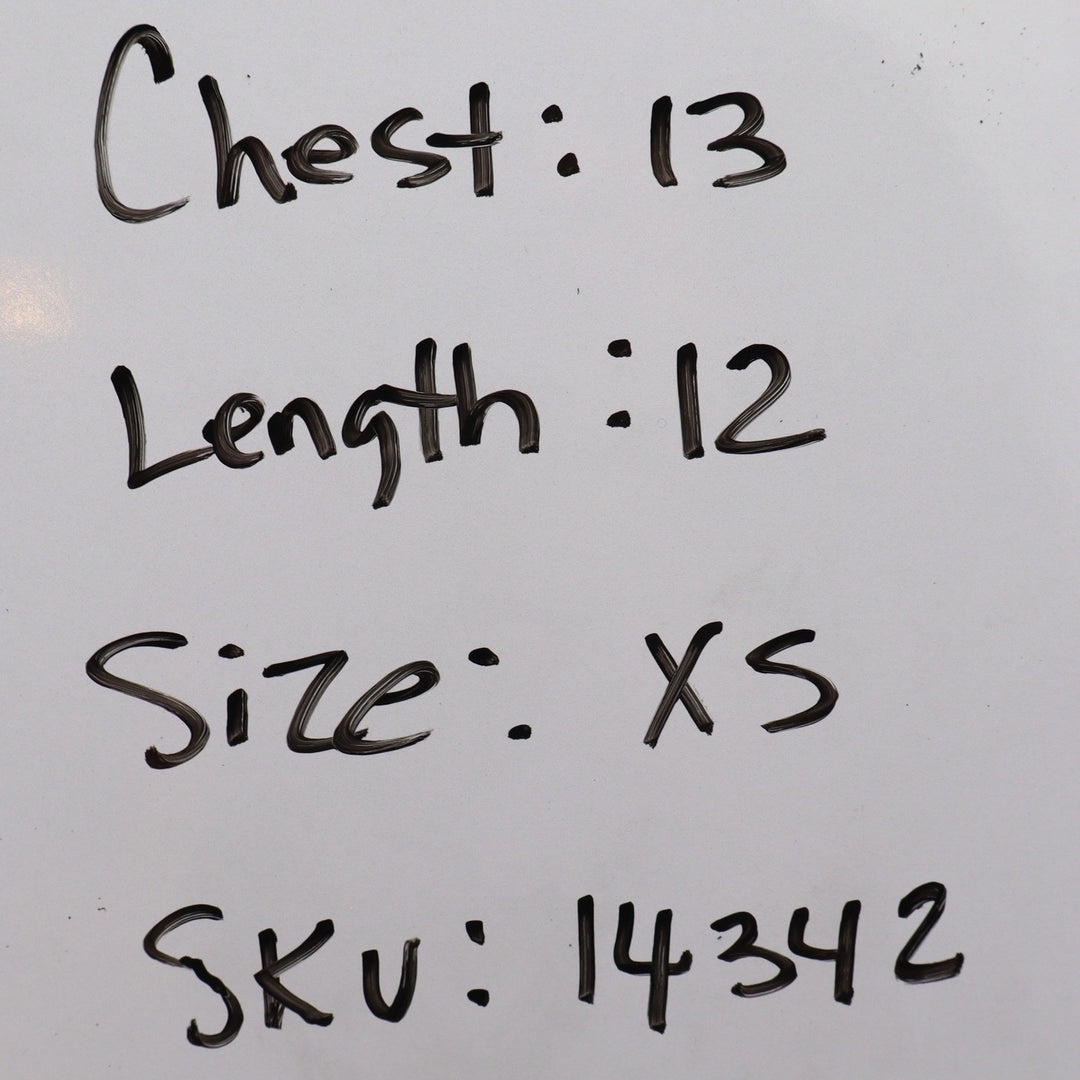 Chest: 13
Length: 12
Size: XS
SKU: 14342